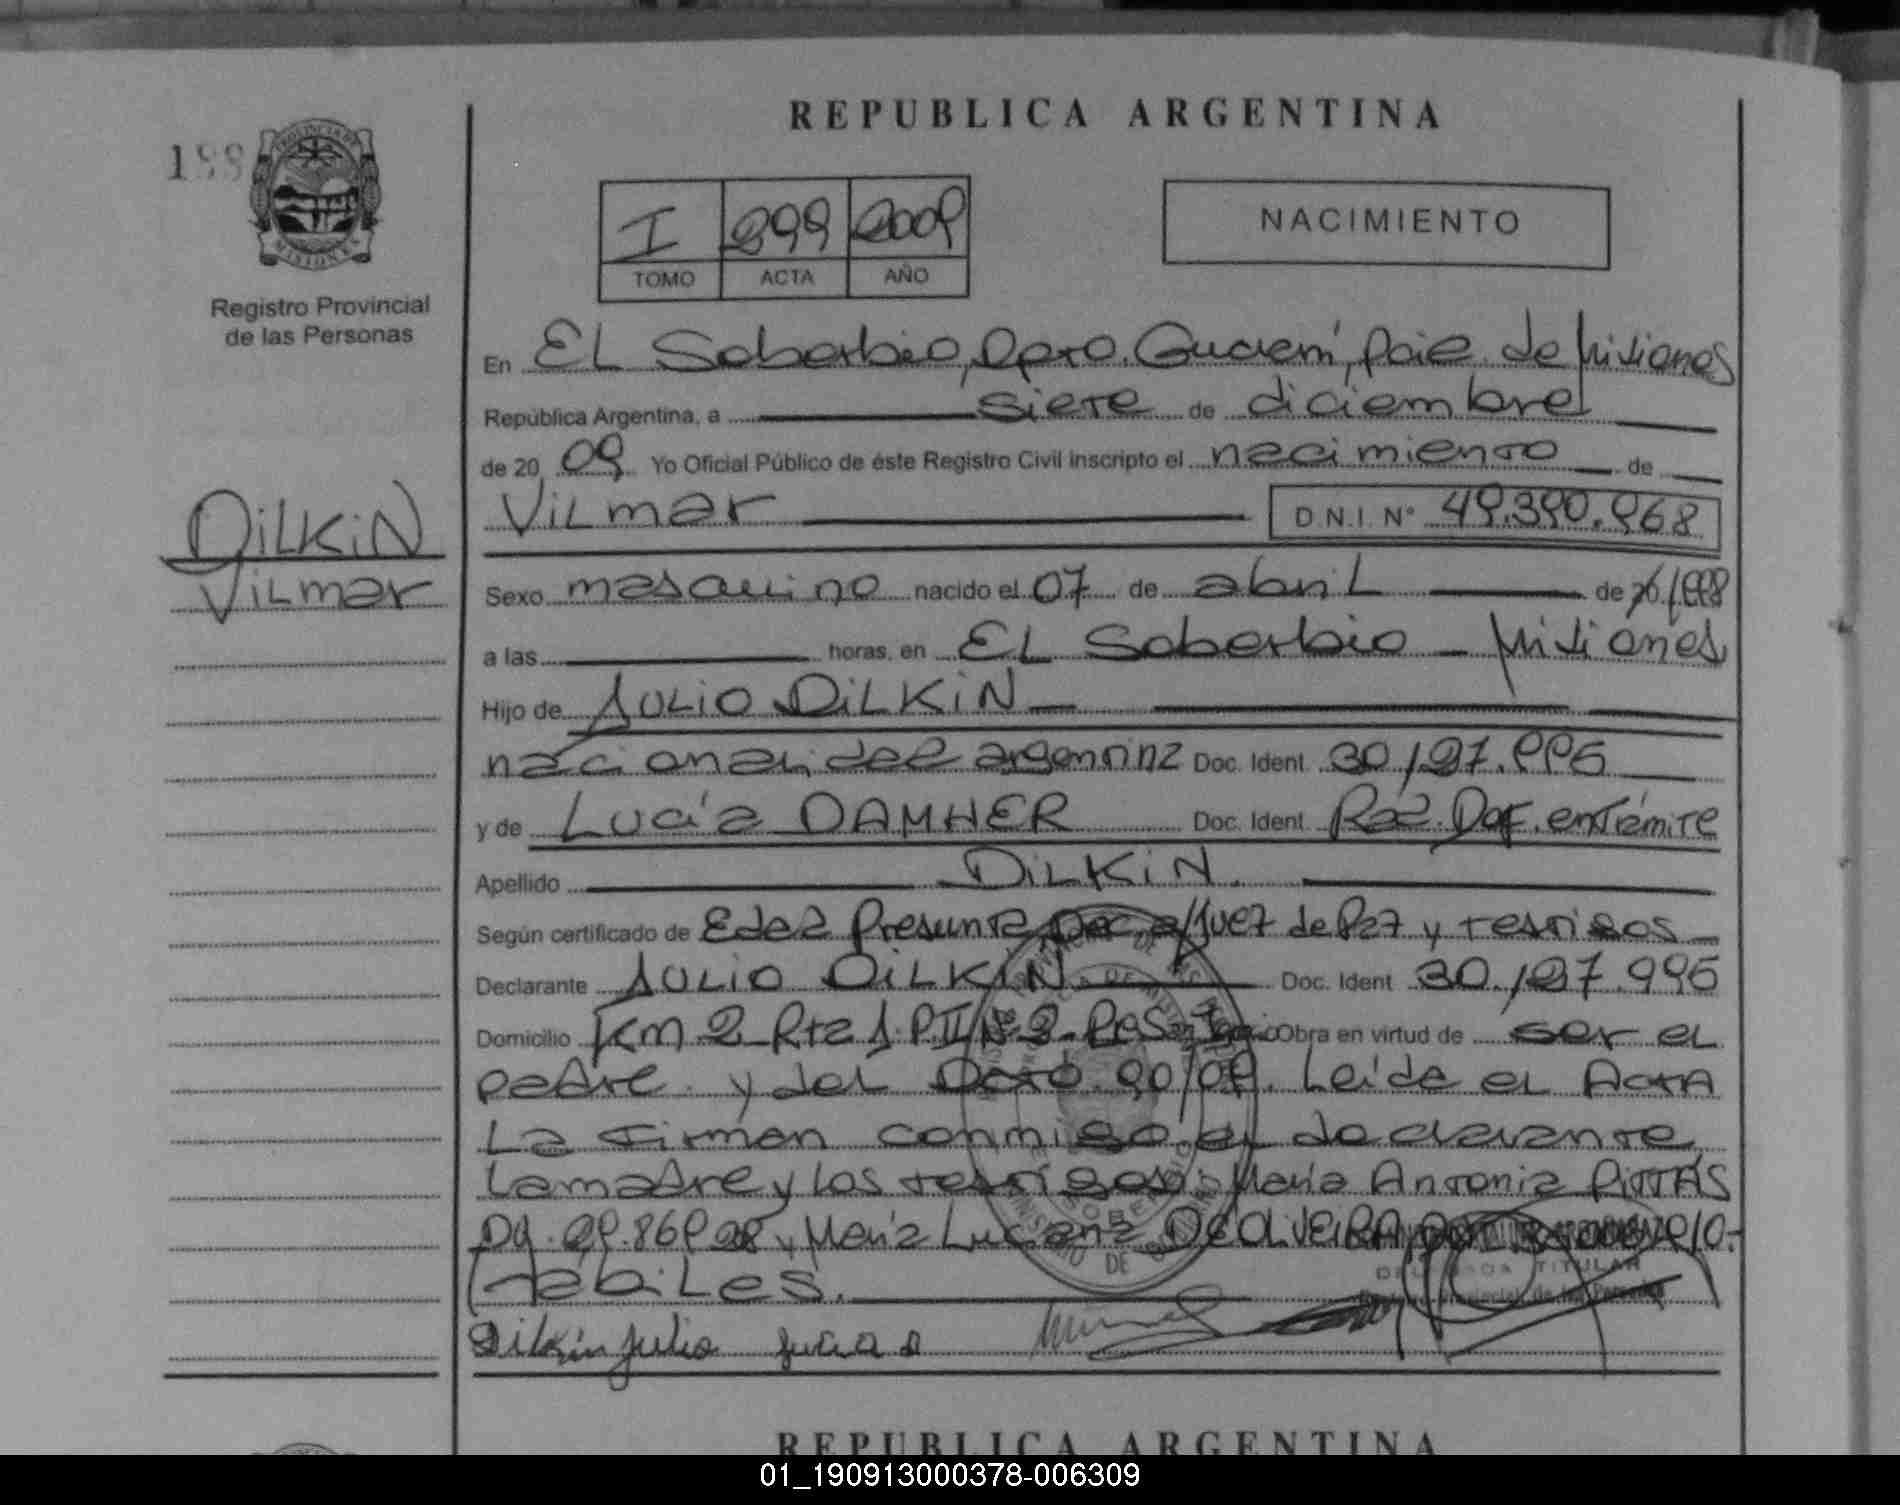 REPUBLICA ARGENTINA
PROVINCIA DE
MISIONES
Registro Provincial
de las Personas
I 899 2009
TOMO ACTA AÑO
NACIMIENTO
En EL Soberbio, Dpto. Guaraní, Pcia. de Misiones
República Argentina, a siete de diciembre
de 20 09 Yo Oficial Público de éste Registro Civil inscripto el nacimiento de
Vilmar D.N.I. N° 49.390.968
DILKIN
Vilmar
Sexo masculino nacido el 07 de abril de 1998
a las horas, en EL Soberbio - Misiones
Hijo de Julio DILKIN
nacionalidad argentina Doc. Ident. 30.197.995
y de Lucía DAMHER Doc. Ident. en Trámite
Apellido DILKIN.
Según certificado de Edad Presunta, Dec. a/Juez de Paz y testigos
Declarante Julio DILKIN Doc. Ident. 30.197.995
Domicilio Km 2 Rta 1 Obra en virtud de ser el
padre y del Dcto 90/09. Leída el Acta
La firman conmigo, el declarante
La madre y los testigos: María Antonia
y María Luciana DE OLIVEIRA
Hábiles.
TITULAR
Dilkin Julio Lucia D
REPUBLICA ARGENTINA
01_190913000378-006309